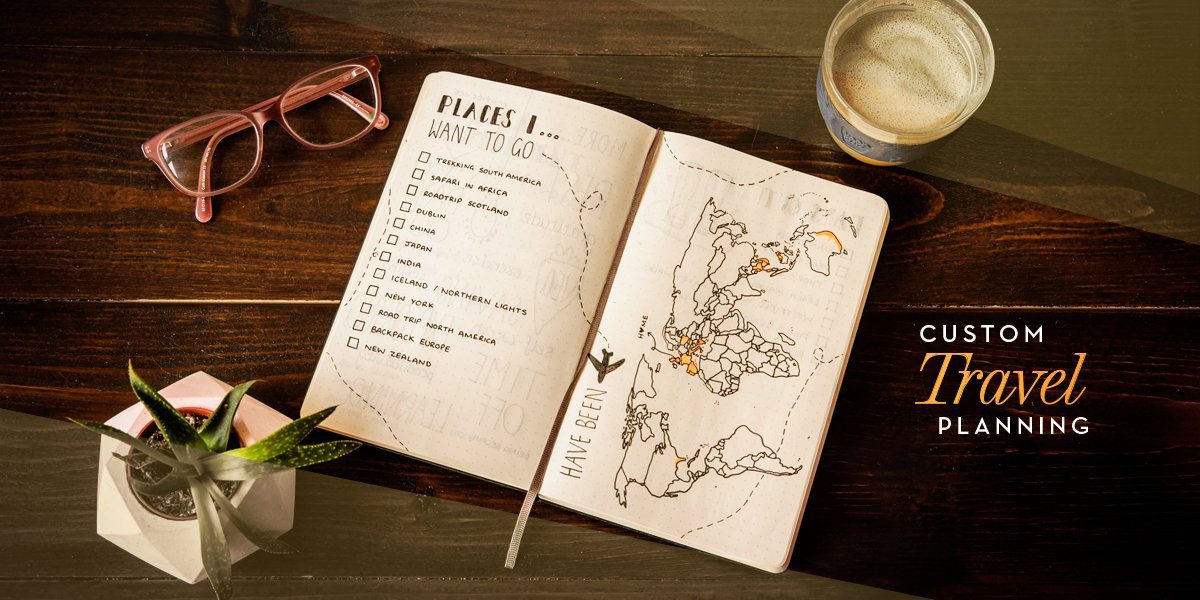 PLACES I...
WANT TO GO
TREKKING SOUTH AMERICA
SAFARI IN AFRICA
ROADTRIP SCOTLAND
DUBLIN
CHINA
JAPAN
INDIA
ICELAND / NORTHERN LIGHTS
NEW YORK
ROAD TRIP NORTH AMERICA
BACKPACK EUROPE
NEW ZEALAND
HAVE BEEN
HOME
CUSTOM
Travel
PLANNING